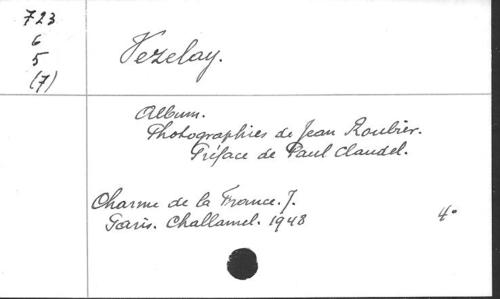 723
6
5
(7)
Vezelay.
Album.
Photographies de Jean Roubier.
Préface de Paul Claudel.
Charme de la France. 7.
Paris. Challamel. 1948
4°